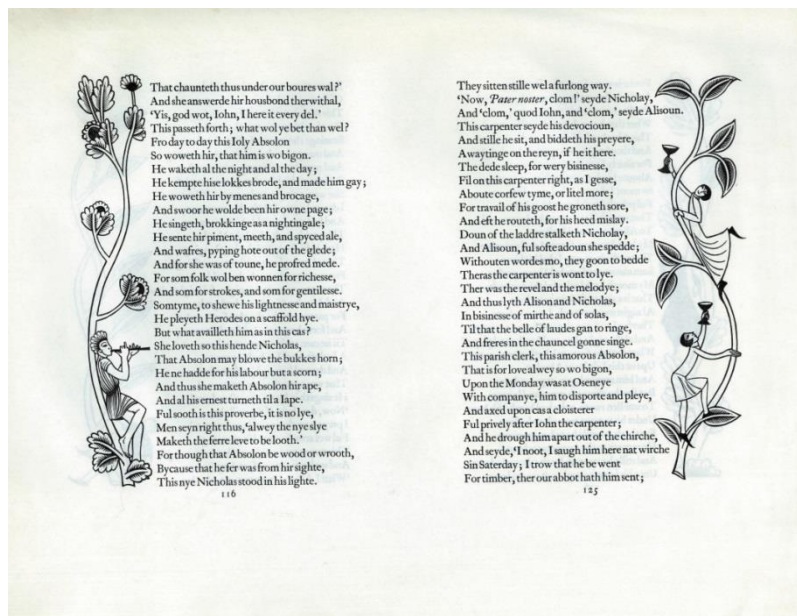 That chaunteth thus under our boures wal?'
And she answerde hir housbond therwithal,
'Yis, god wot, Iohn, I here it every del.'
This passeth forth; what wol ye bet than wel?
Fro day to day this Ioly Absolon
So woweth hir, that him is wo bigon.
He waketh al the night and al the day;
He kempte hise lokkes brode, and made him gay;
He woweth hir by menes and brocage,
And swoor he wolde been hir owne page;
He singeth, brokkinge as a nightingale;
He sente hir piment, meeth, and spyced ale,
And wafres, pyping hote out of the glede;
And for she was of toune, he profred mede.
For som folk wol ben wonnen for richesse,
And som for strokes, and som for gentilesse.
Somtyme, to shewe his lightnesse and maistrye,
He pleyeth Herodes on a scaffold hye.
But what availleth him as in this cas?
She loveth so this hende Nicholas,
That Absolon may blowe the bukkes horn;
He ne hadde for his labour but a scorn;
And thus she maketh Absolon hir ape,
And al his ernest turneth til a Iape.
Ful sooth is this proverbe, it is no lye,
Men seyn right thus, 'alwey the nye slye
Maketh the ferre leve to be looth.'
For though that Absolon be wood or wrooth,
Bycause that he fer was from hir sighte,
This nye Nicholas stood in his lighte.
116
They sitten stille wel a furlong way.
'Now, Pater noster, clom!' seyde Nicholay,
And 'clom,' quod Iohn, and 'clom,' seyde Alisoun.
This carpenter seyde his devocioun,
And stille he sit, and biddeth his preyere,
Awaytinge on the reyn, if he it here.
The dede sleep, for wery bisinesse,
Fil on this carpenter right, as I gesse,
Aboute corfew tyme, or litel more;
For travail of his goost he groneth sore,
And eft he routeth, for his heed mislay.
Doun of the laddre stalketh Nicholay,
And Alisoun, ful softe adoun she spedde;
Withouten wordes mo, they goon to bedde
Theras the carpenter is wont to lye.
Ther was the revel and the melodye;
And thus lyth Alison and Nicholas,
In bisinesse of mirthe and of solas,
Til that the belle of laudes gan to ringe,
And freres in the chauncel gonne singe.
This parish clerk, this amorous Absolon,
That is for love alwey so wo bigon,
Upon the Monday was at Oseneye
With companye, him to disporte and pleye,
And axed upon cas a cloisterer
Ful prively after Iohn the carpenter;
And he drough him apart out of the chirche,
And seyde, 'I noot, I saugh him here nat wirche
Sin Saterday; I trow that he be went
For timber, ther our abbot hath him sent;
125